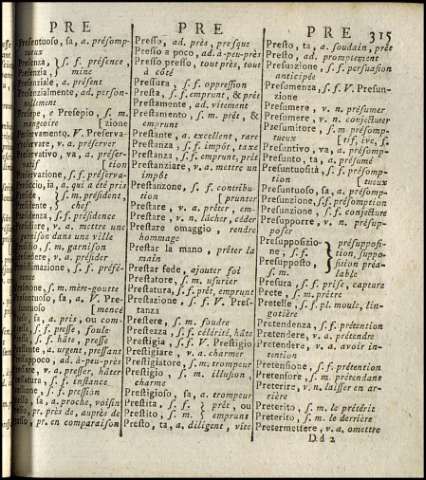 PRE
PRE
PRE
315
Presentuoso, sa, a. présomp-
tueux
Presenza, s. f. présence,
Presenzia, mine
Presenziale, a. présent
Presenzialmente, ad. person-
nellement
Presepe, e Presepio, s. m.
mangeoire [zione
Preservamento. V. Preserva-
Preservare, v. a. préserver
Preservativo, va, a. préser-
vatif [tion
Preservazione, s. f. préserva-
a. qui a été pris
Preside, s. m. président,
Presidente, chef
Presidenza, s. f. présidence
v. a. mettre une
garnison dans une ville
Presidio, s. m. garnison
v. a. présider
s. f. présé-
s. m. mére-goutte
sa, a. V. Pre-
[mencé
sa, a. pris, ou com-
s. f. presse, foule
s. f. hâte, presse
a. urgent, pressant
ad. à-peu-près
v. a. presser, hâter
s. f. instance
s. f. pression
sa, a. proche, voisin
pr. près de, auprès de
pr. en comparaison
Presso, ad. près, presque
Presso a poco, ad. à-peu-près
Presso presso, tout près, tout
à côté
Pressura, s. f. oppression
Presta, s. f. emprunt, & prêt
Prestamente, ad. vitement
Prestamento, s. m. prêt, &
emprunt
Prestante, a. excellent, rare
Prestanza, s. f. impôt, taxe
Prestanza, s. f. emprunt, prêt
Prestanziare, v. a. mettre un
impôt
Prestanzone, s. f. contribu-
tion [prunter
Prestare, v. a. prêter, em-
Prestare, v. n. lâcher, céder
Prestare omaggio, rendre
hommage
Prestar la mano, prêter la
main
Prestar fede, ajouter foi
Prestatore, s. m. usurier
Prestatura, s. f. prêt, emprunt
Prestazione, s. f. V. Pres-
tanza
Prestere, s. m. foudre
Prestezza, s. f. célérité, hâte
Prestigia, s. f. V. Prestigio
Prestigiare, v. a. charmer
Prestigiatore, s. m. trompeur
Prestigio, s. m. illusion,
charme
Prestigioso, sa, a. trompeur
Prestita, s. f. prêt, ou
Prestito, s. m. emprunt
Presto, ta, a. diligent, vite
Presto, ta, a. soudain, prêt
Presto, ad. promptement
Presunzione, s. f. persuasion
anticipée
Presumenza, s. f. V. Presun-
zione
Presumere, v. n. présumer
Presumere, v. n. conjecturer
Presumitore, s. m. présomp-
tueux [tif, ive, f.
Presuntivo, va, a. présomp-
Presunto, ta, a. présumé
Presuntuosità, s. f. présomp-
tion [tueux
Presuntuoso, sa, a. présomp-
Presunzione, s. f. présomption
Presunzione, s. f. conjecture
Presupporre, v. n. présup-
poser
Presupposizio-
ne, s. f. présupposi-
Presupposto, tion, suppo-
s. m. sition préa-
lable
Presura, s. f. prise, capture
Prete, s. m. prêtre
Pretelle, s. f. pl. moule, lin-
gotière
Pretendenza, s. f. prétention
Pretendere, v. a. prétendre
Pretendere, v. a. avoir in-
tention
Pretensione, s. f. prétention
Pretensore, s. m. prétendant
Preterire, v. n. laisser en ar-
rière
Preterito, s. m. le prétérit
Preterito, s. m. le derrière
Pretermettere, v. a. omettre
D d 2